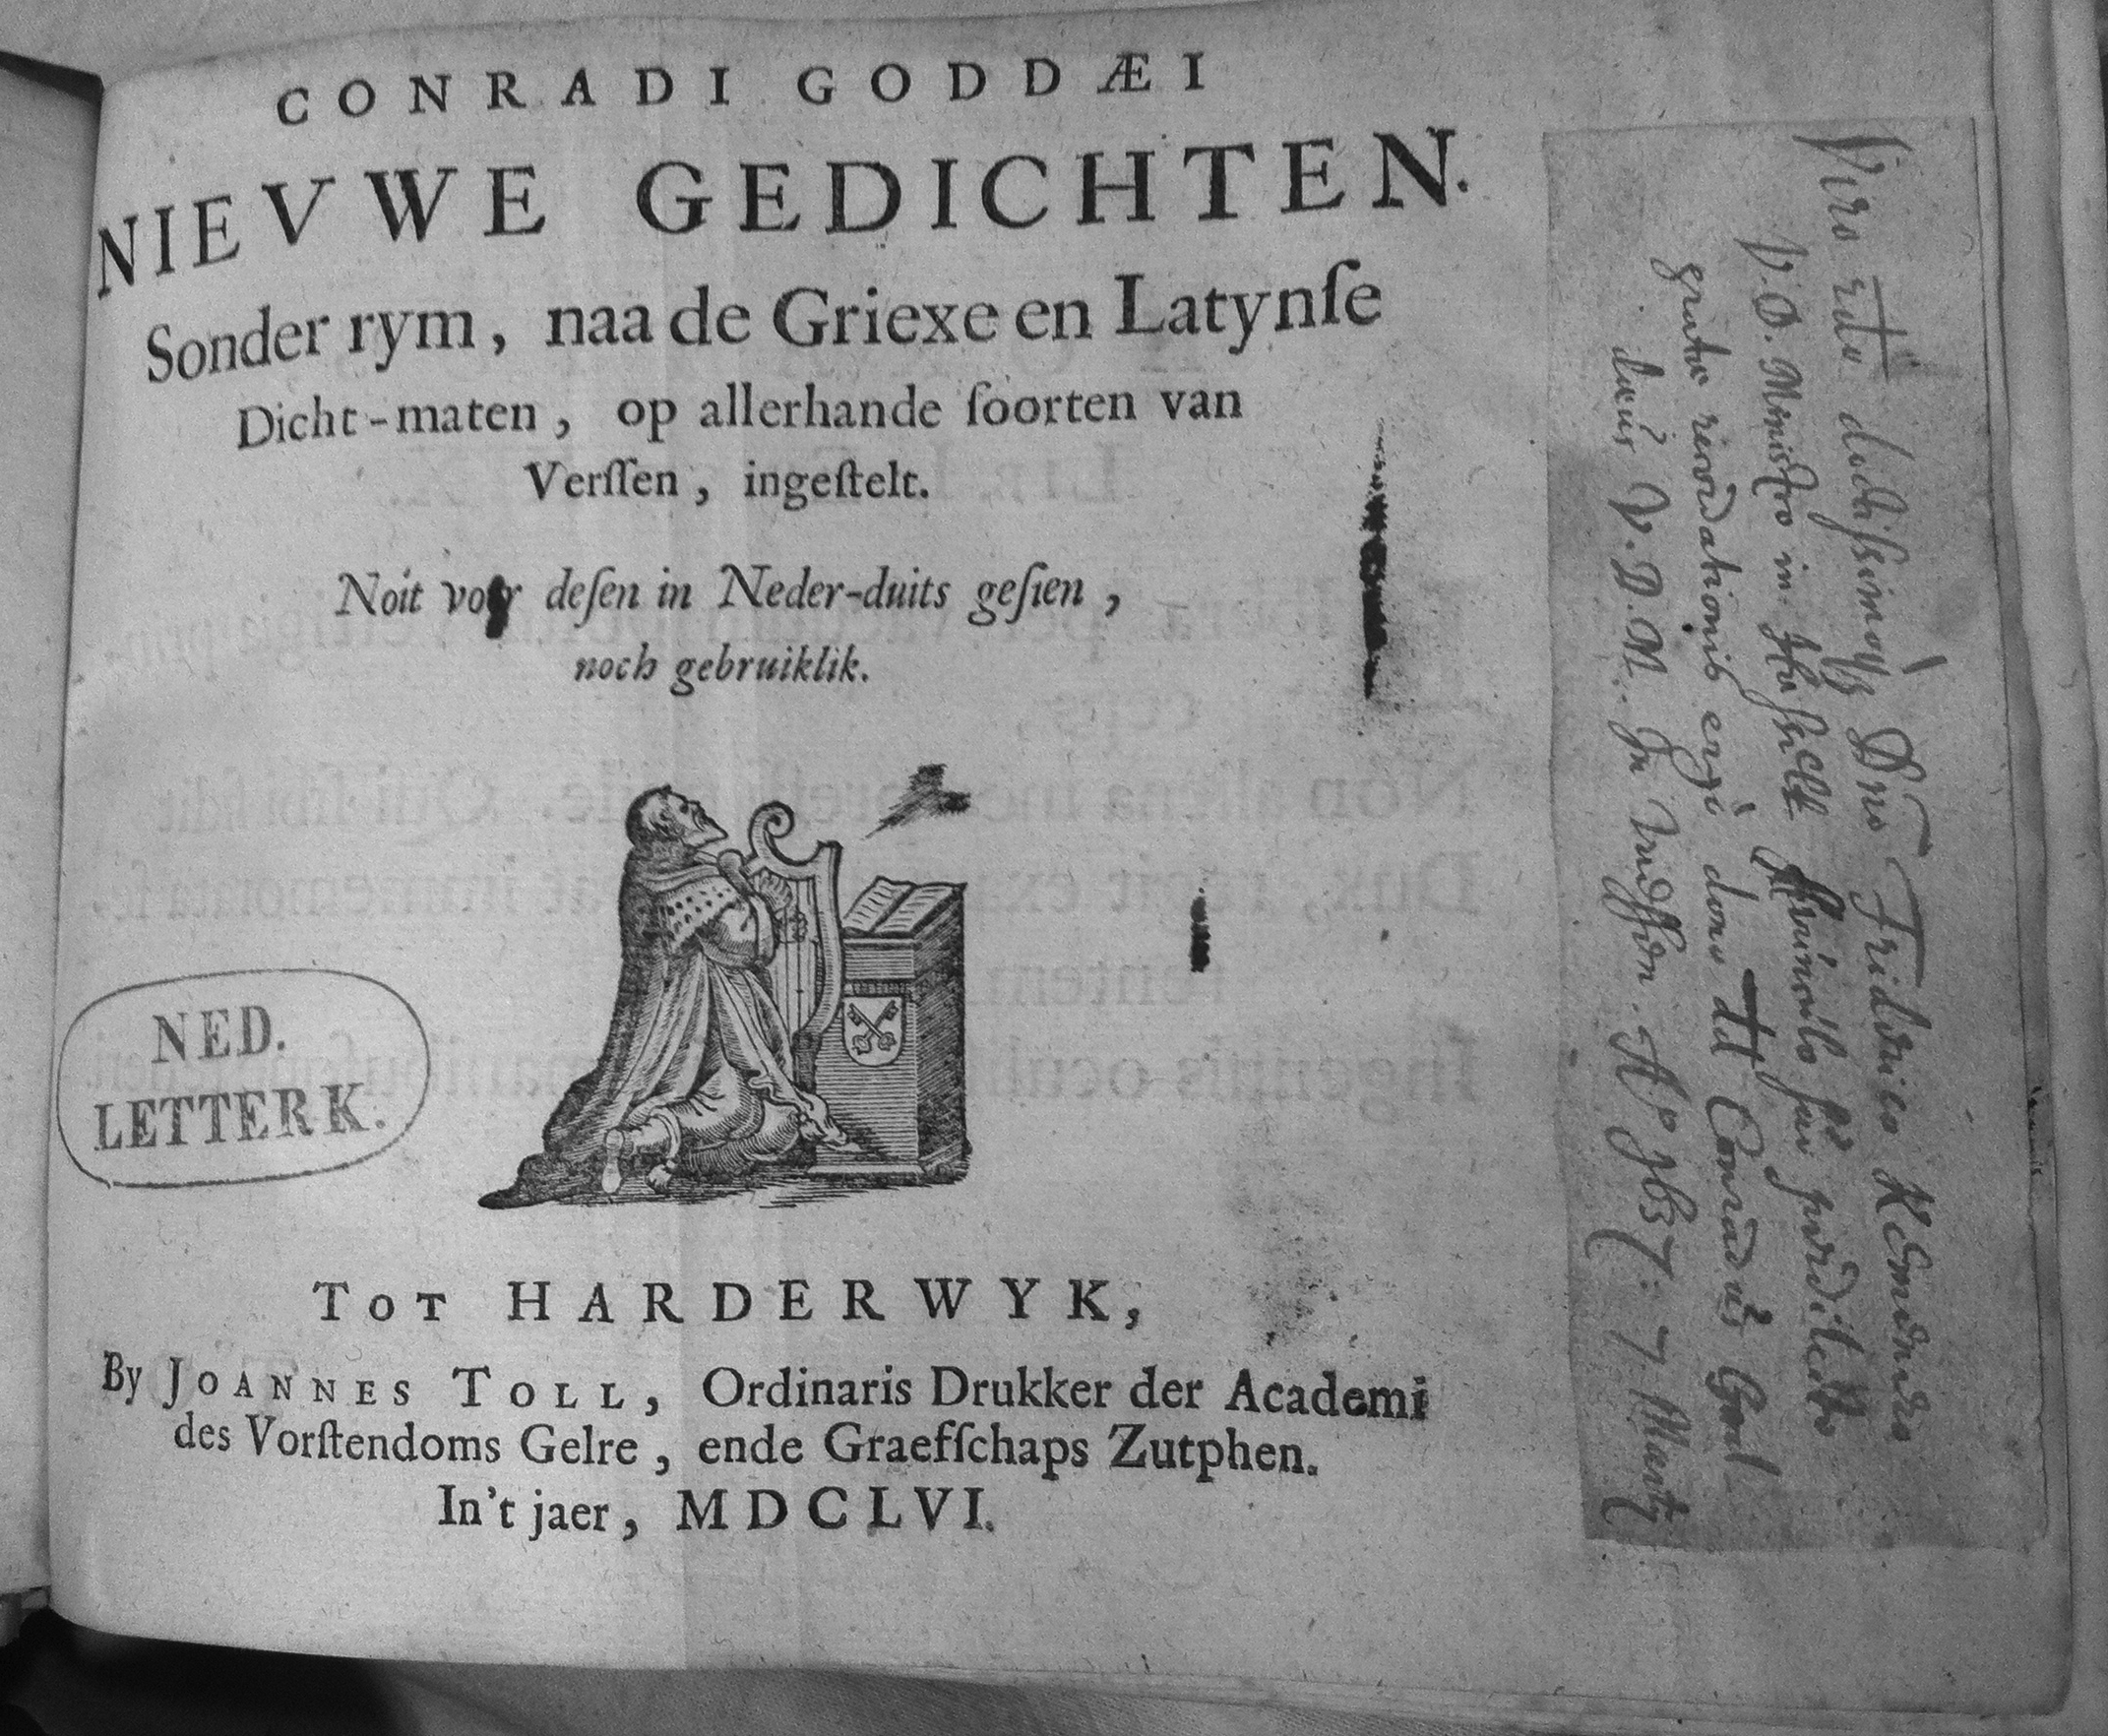 CONRADI GODDÆI
NIEVWE GEDICHTEN.
Sonder rym, naa de Griexe en Latynſe
Dicht-maten, op allerhande ſoorten van
Verſſen, ingeſtelt.
Noit voor deſen in Neder-duits geſien,
noch gebruiklik.
NED.
LETTERK.
TOT HARDERWYK,
By JOANNES TOLL, Ordinaris Drukker der Academi
des Vorſtendoms Gelre, ende Graefſchaps Zutphen.
In't jaer, MDCLVI.
Viro doctissimoq3 Dno Friderico Kemenero
V.D. Ministro in Amiculo suo perdilecto
grata recordationis ergò dono dd Conradus God
daeus V.D.M. In Vaessen. A° 1657. 7 Marty